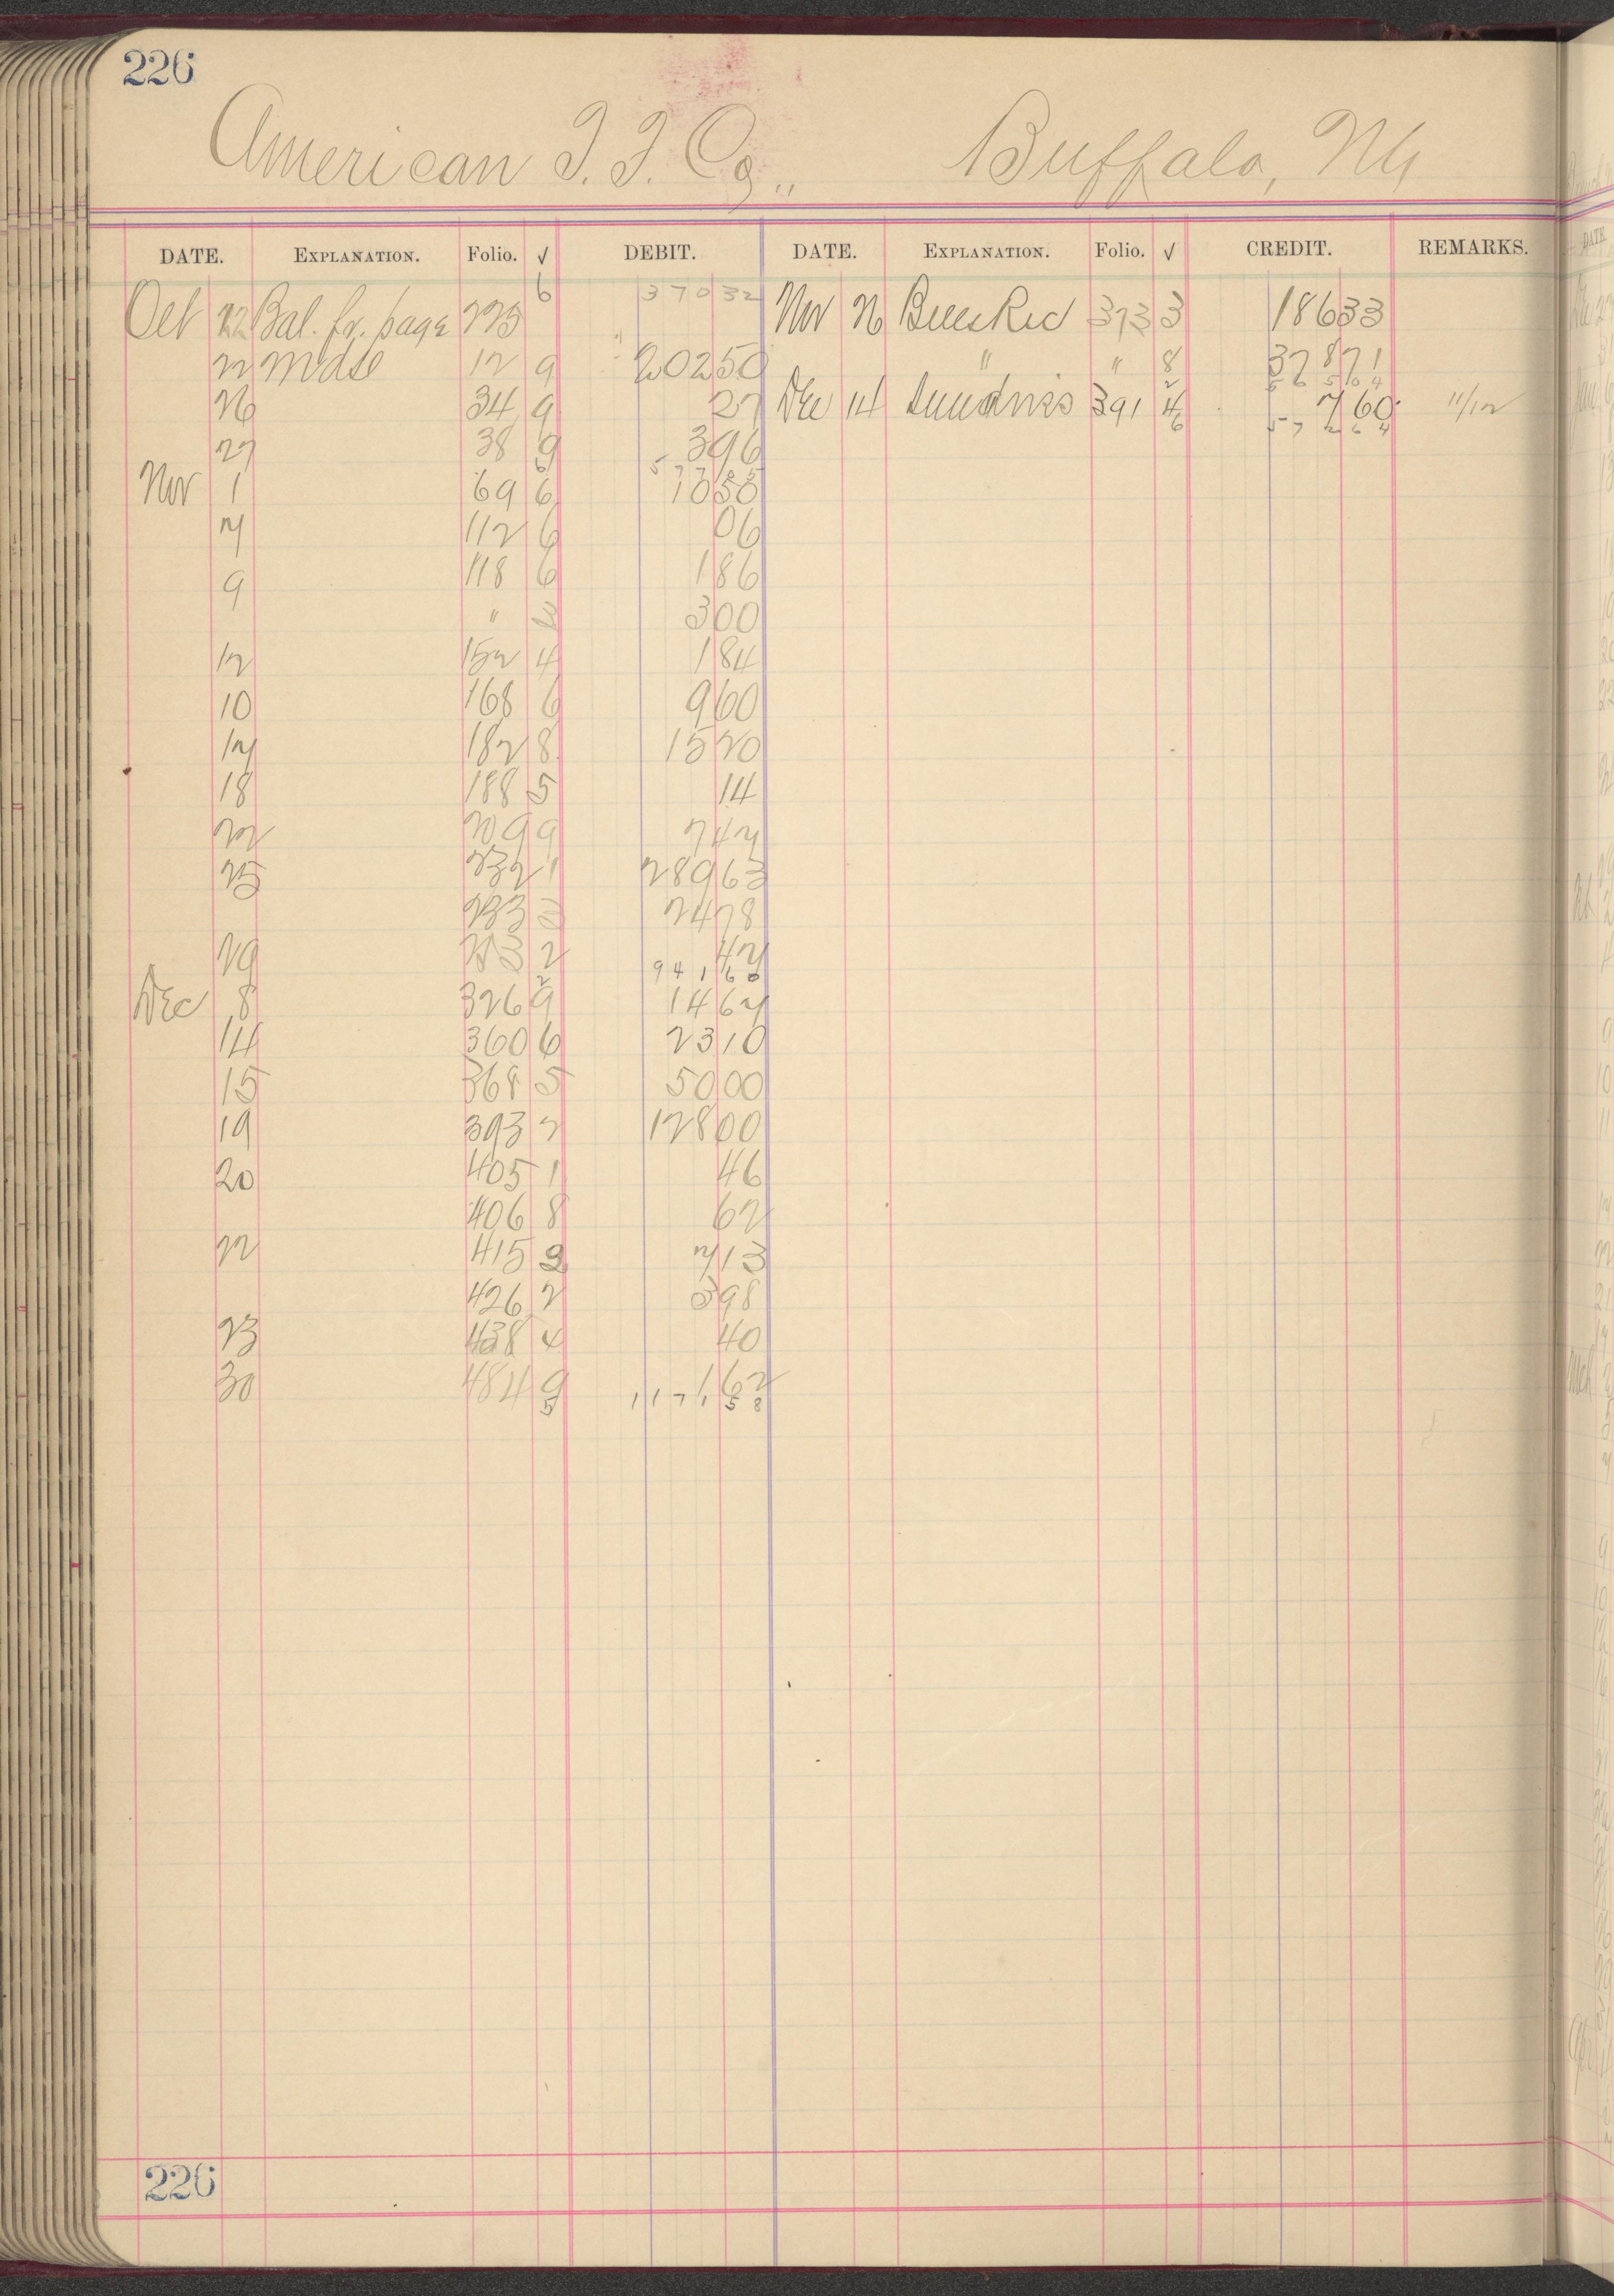 226
American T. T. Co., Buffalo, NY
DATE. EXPLANATION. Folio. √ DEBIT. DATE. EXPLANATION. Folio. √ CREDIT. REMARKS.
Oct 22 Bal. fr. page 225 6 370 32 Nov 26 Bills Rec 373 3 186 33
22 Mdse 12 9 202 50 " " 8 378 71
565 04
26 34 9 27 Dec 14 Sundries 391 4 7 60 11/12
572 64
27 38 9 3 96
Nov 1 69 6 10 50
7 112 6 06
9 118 6 1 86
" 3 00
12 152 4 1 84
10 168 6 9 60
14 182 8 15 20
18 188 5 14
22 209 9 7 47
25 232 1 289 63
233 3 24 78
29 2 42
941 60
Dec 8 326 9 14 64
14 360 6 23 10
15 368 5 50 00
19 393 2 128 00
20 405 1 46
406 8 62
22 415 2 7 13
426 2 3 98
23 438 4 40
30 484 9 1 62
1171 58
226